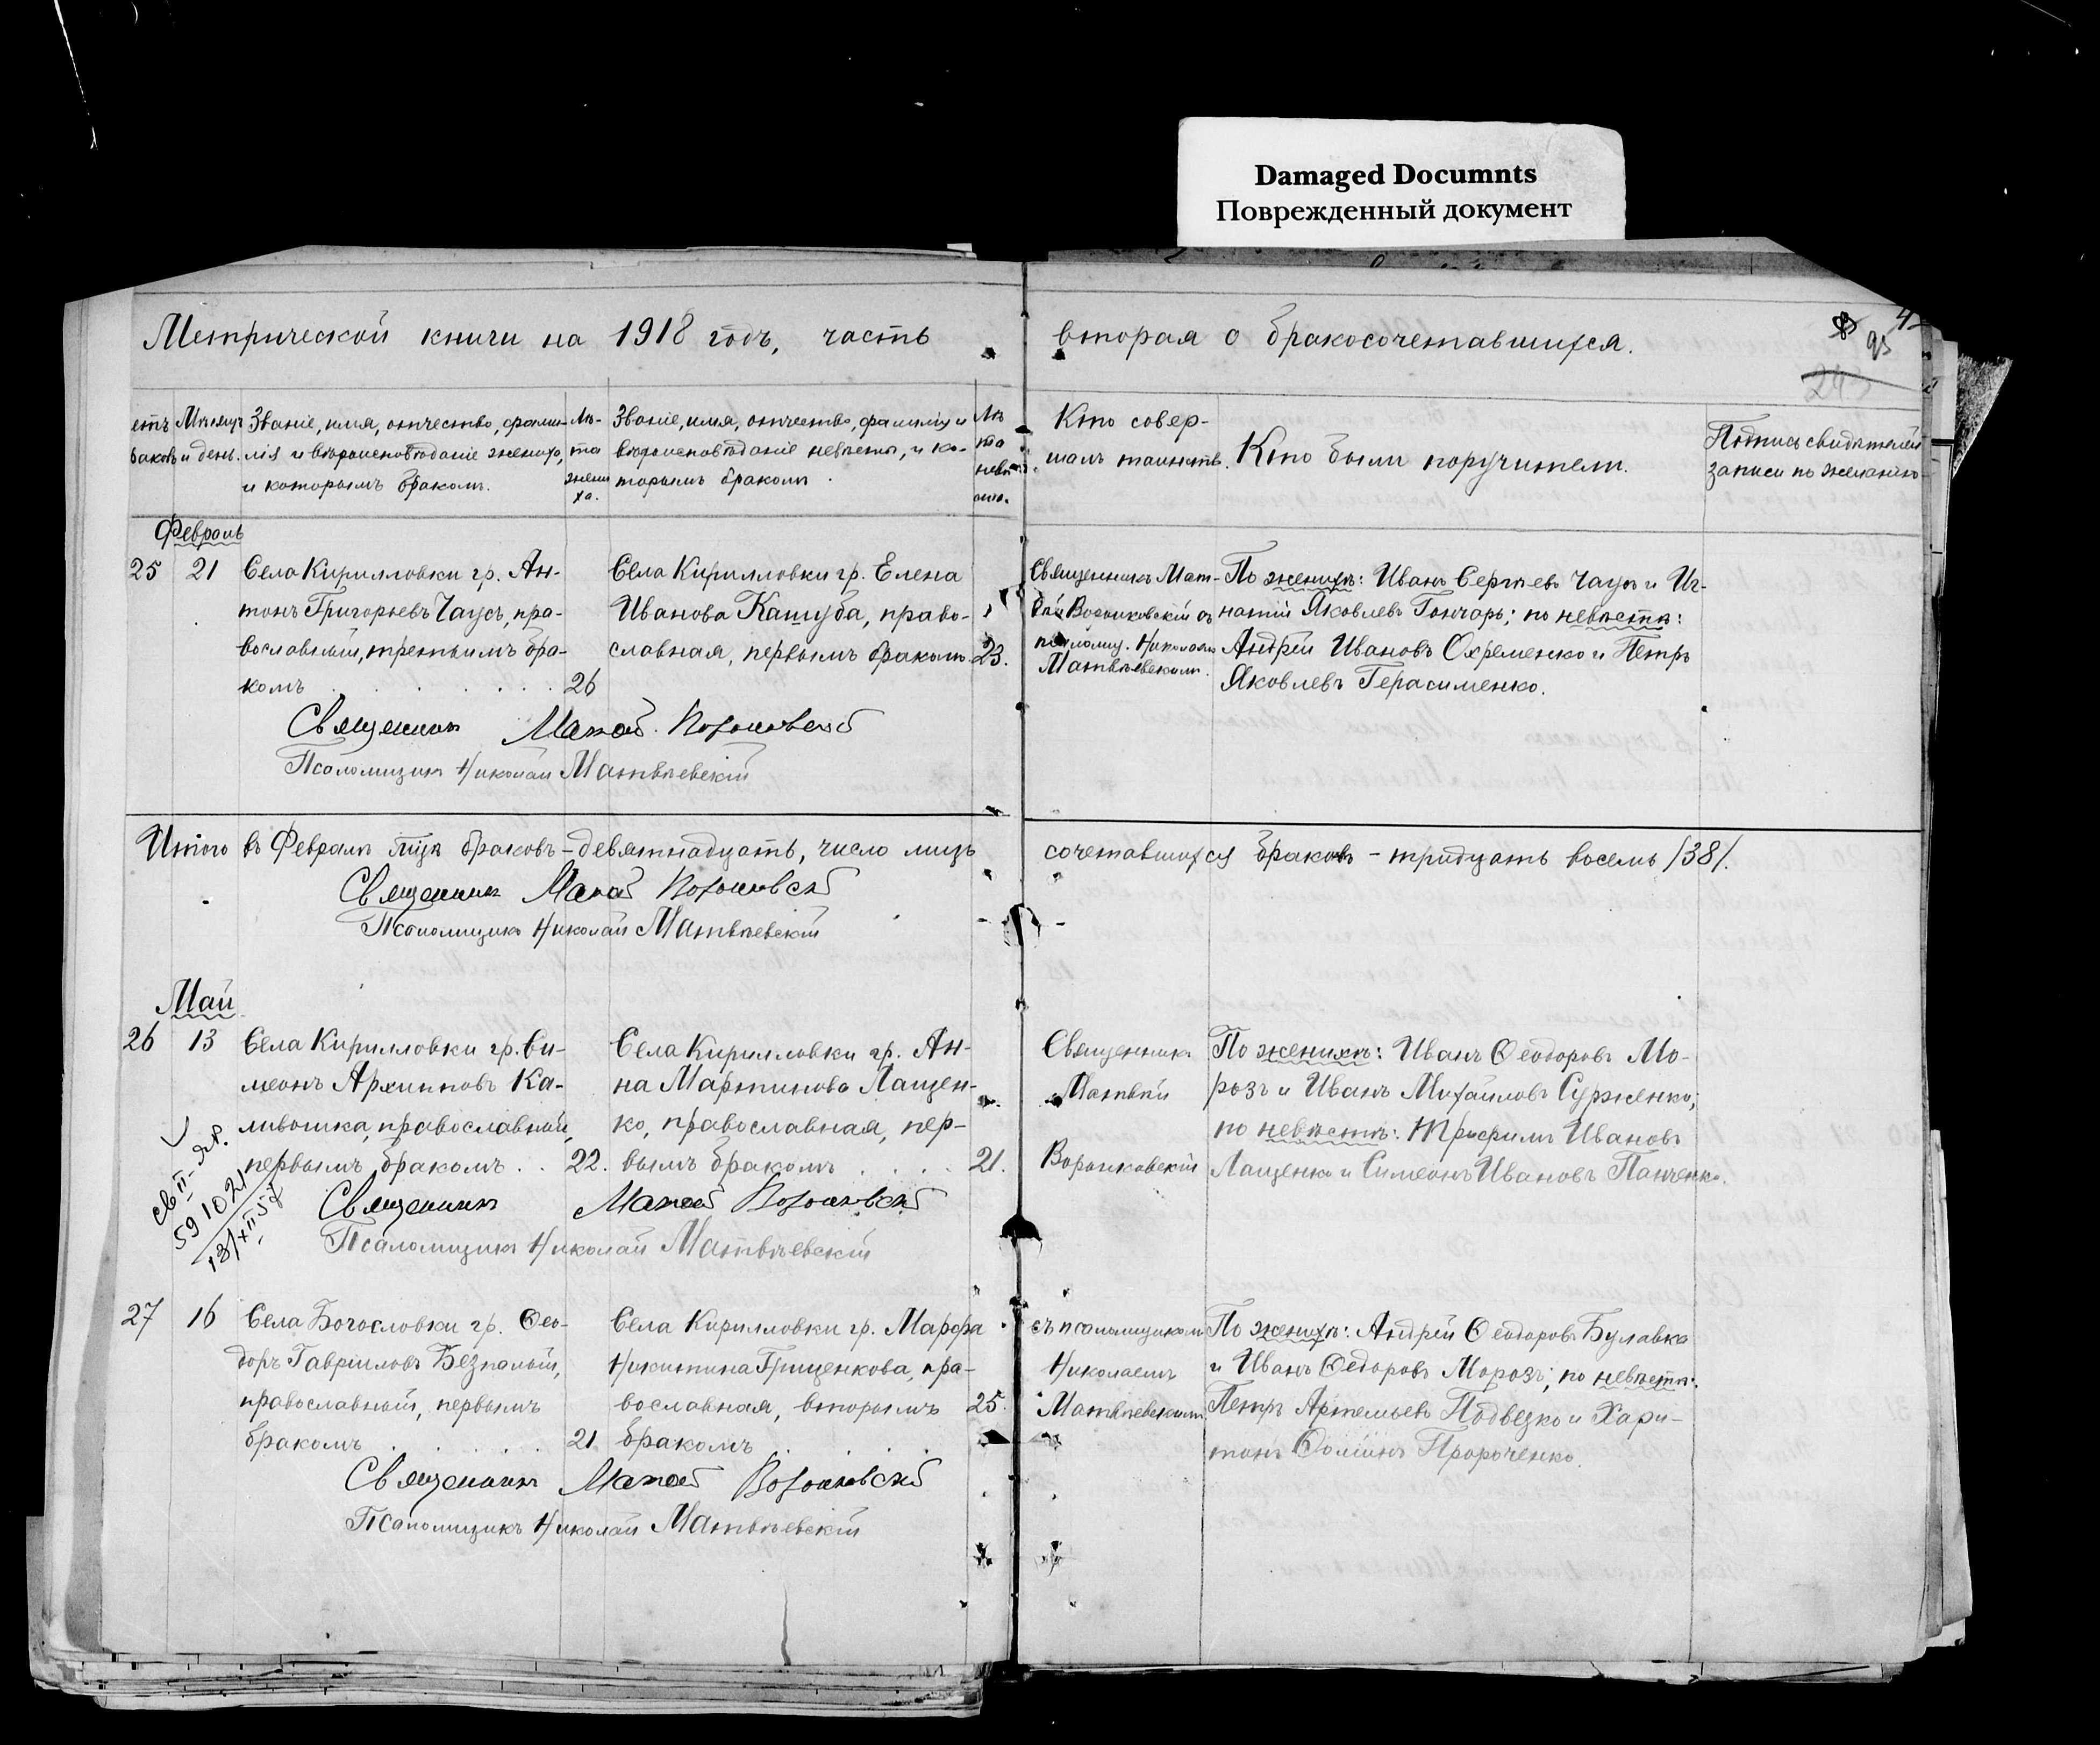 Damaged Documnts
Поврежденный документ
Метрической книги на 1918 годъ, часть
вторая о бракосочетавшихся.
95
243
Мѣсяцъ и день.
Званіе, имя, отчество, фами-
лія и вѣроисповѣданіе жениха,
и которымъ бракомъ.
Лѣ-
та
жени
ха.
Званіе, имя, отчество, фамилія и
вѣроисповѣданіе невѣсты, и ко-
торымъ бракомъ.
Лѣ
та
невѣ
сты.
Кто совер-
шалъ таинств.
Кто были поручители.
Подпись свидѣтелей
записи по желанію
Февраль
25 21 Села Кирилловки гр. Ан-
тонъ Григорьевъ Чаусъ, пра-
вославный, третьимъ бра-
комъ 26
Села Кирилловки гр. Елена
Иванова Кашуба, право-
славная, первымъ бракомъ 23.
Священникъ Мат-
вѣй Воронковскій съ
псаломщ. Николаемъ
Матвѣевскимъ.
По женихѣ: Иванъ Сергѣевъ Чаусъ и Иг-
натій Яковлевъ Гончаръ; по невѣстѣ:
Андрей Ивановъ Охременко и Петръ
Яковлевъ Герасименко.
Священникъ Матвѣй Воронковскій
Псаломщикъ Николай Матвѣевскій
Итого въ Февралѣ мцѣ браковъ - девятнадцать, число лицъ
сочетавшихся бракомъ - тридцать восемь /38/.
Священникъ Матвѣй Воронковскій
Псаломщикъ Николай Матвѣевскій
Май
26 13 Села Кирилловки гр. Си-
меонъ Архиповъ Ка-
ливошка, православный,
первымъ бракомъ . . 22.
Села Кирилловки гр. Ан-
на Мартинова Лащен-
ко, православная, пер-
вымъ бракомъ . . . . 21.
Священникъ
Матвѣй
Воронковскій
По женихѣ: Иванъ Ѳеодоровъ Мо-
розъ и Иванъ Михайловъ Сурженко;
по невѣстѣ: Трифилъ Ивановъ
Лащенко и Симеонъ Ивановъ Панченко.
св II-ЯР.
591021
13/XII 57
Священникъ Матвѣй Воронковскій
Псаломщикъ Николай Матвѣевскій
27 16 Села Богословки гр. Ѳео-
доръ Гавріиловъ Безпалый,
православный, первымъ
бракомъ . . . . . 21
Села Кирилловки гр. Марфа
Никитина Грищенкова, пра-
вославная, вторымъ 25.
бракомъ . . . .
съ псаломщикомъ
Николаемъ
Матвѣевскимъ
По женихѣ: Андрей Ѳеодоровъ Булавка
и Иванъ Ѳедоровъ Морозъ; по невѣстѣ:
Петръ Артемьевъ Подвезко и Хари-
тонъ Ѳоминъ Пророченко.
Священникъ Матвѣй Воронковскій
Псаломщикъ Николай Матвѣевскій